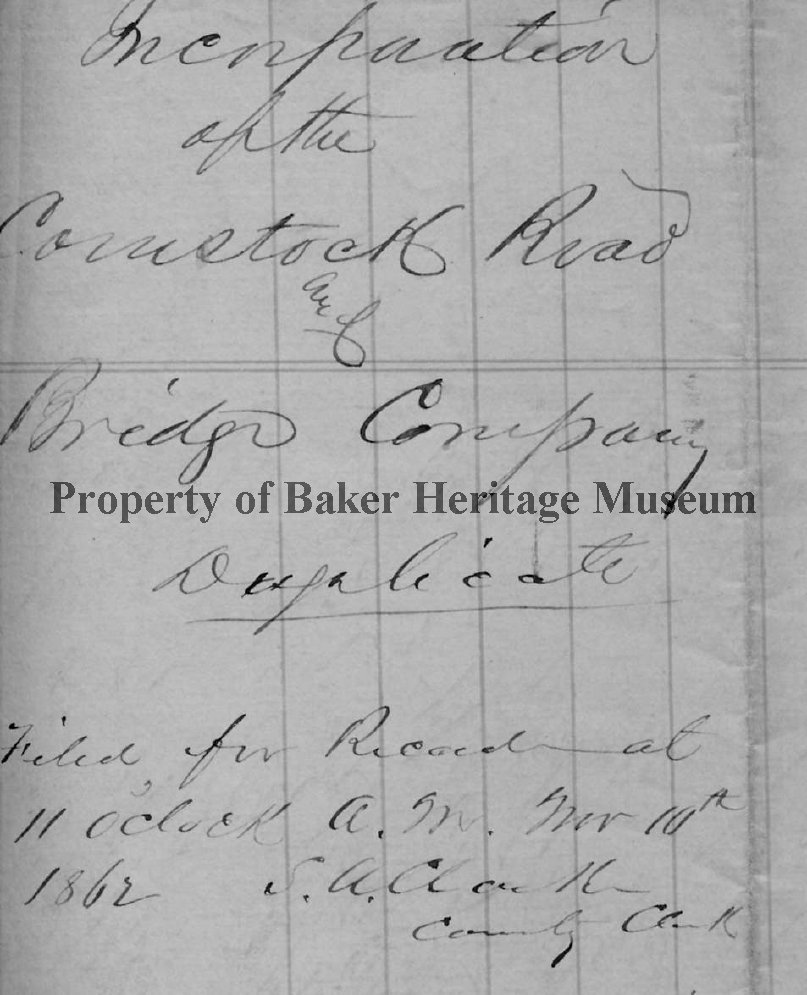 Incorporation
of the
Comstock Road
and
Bridge Company
Property of Baker Heritage Museum
Duplicate
Filed for Record at
11 oclock A. M. Nov 10th
1862 S. A. Clark
County Clerk